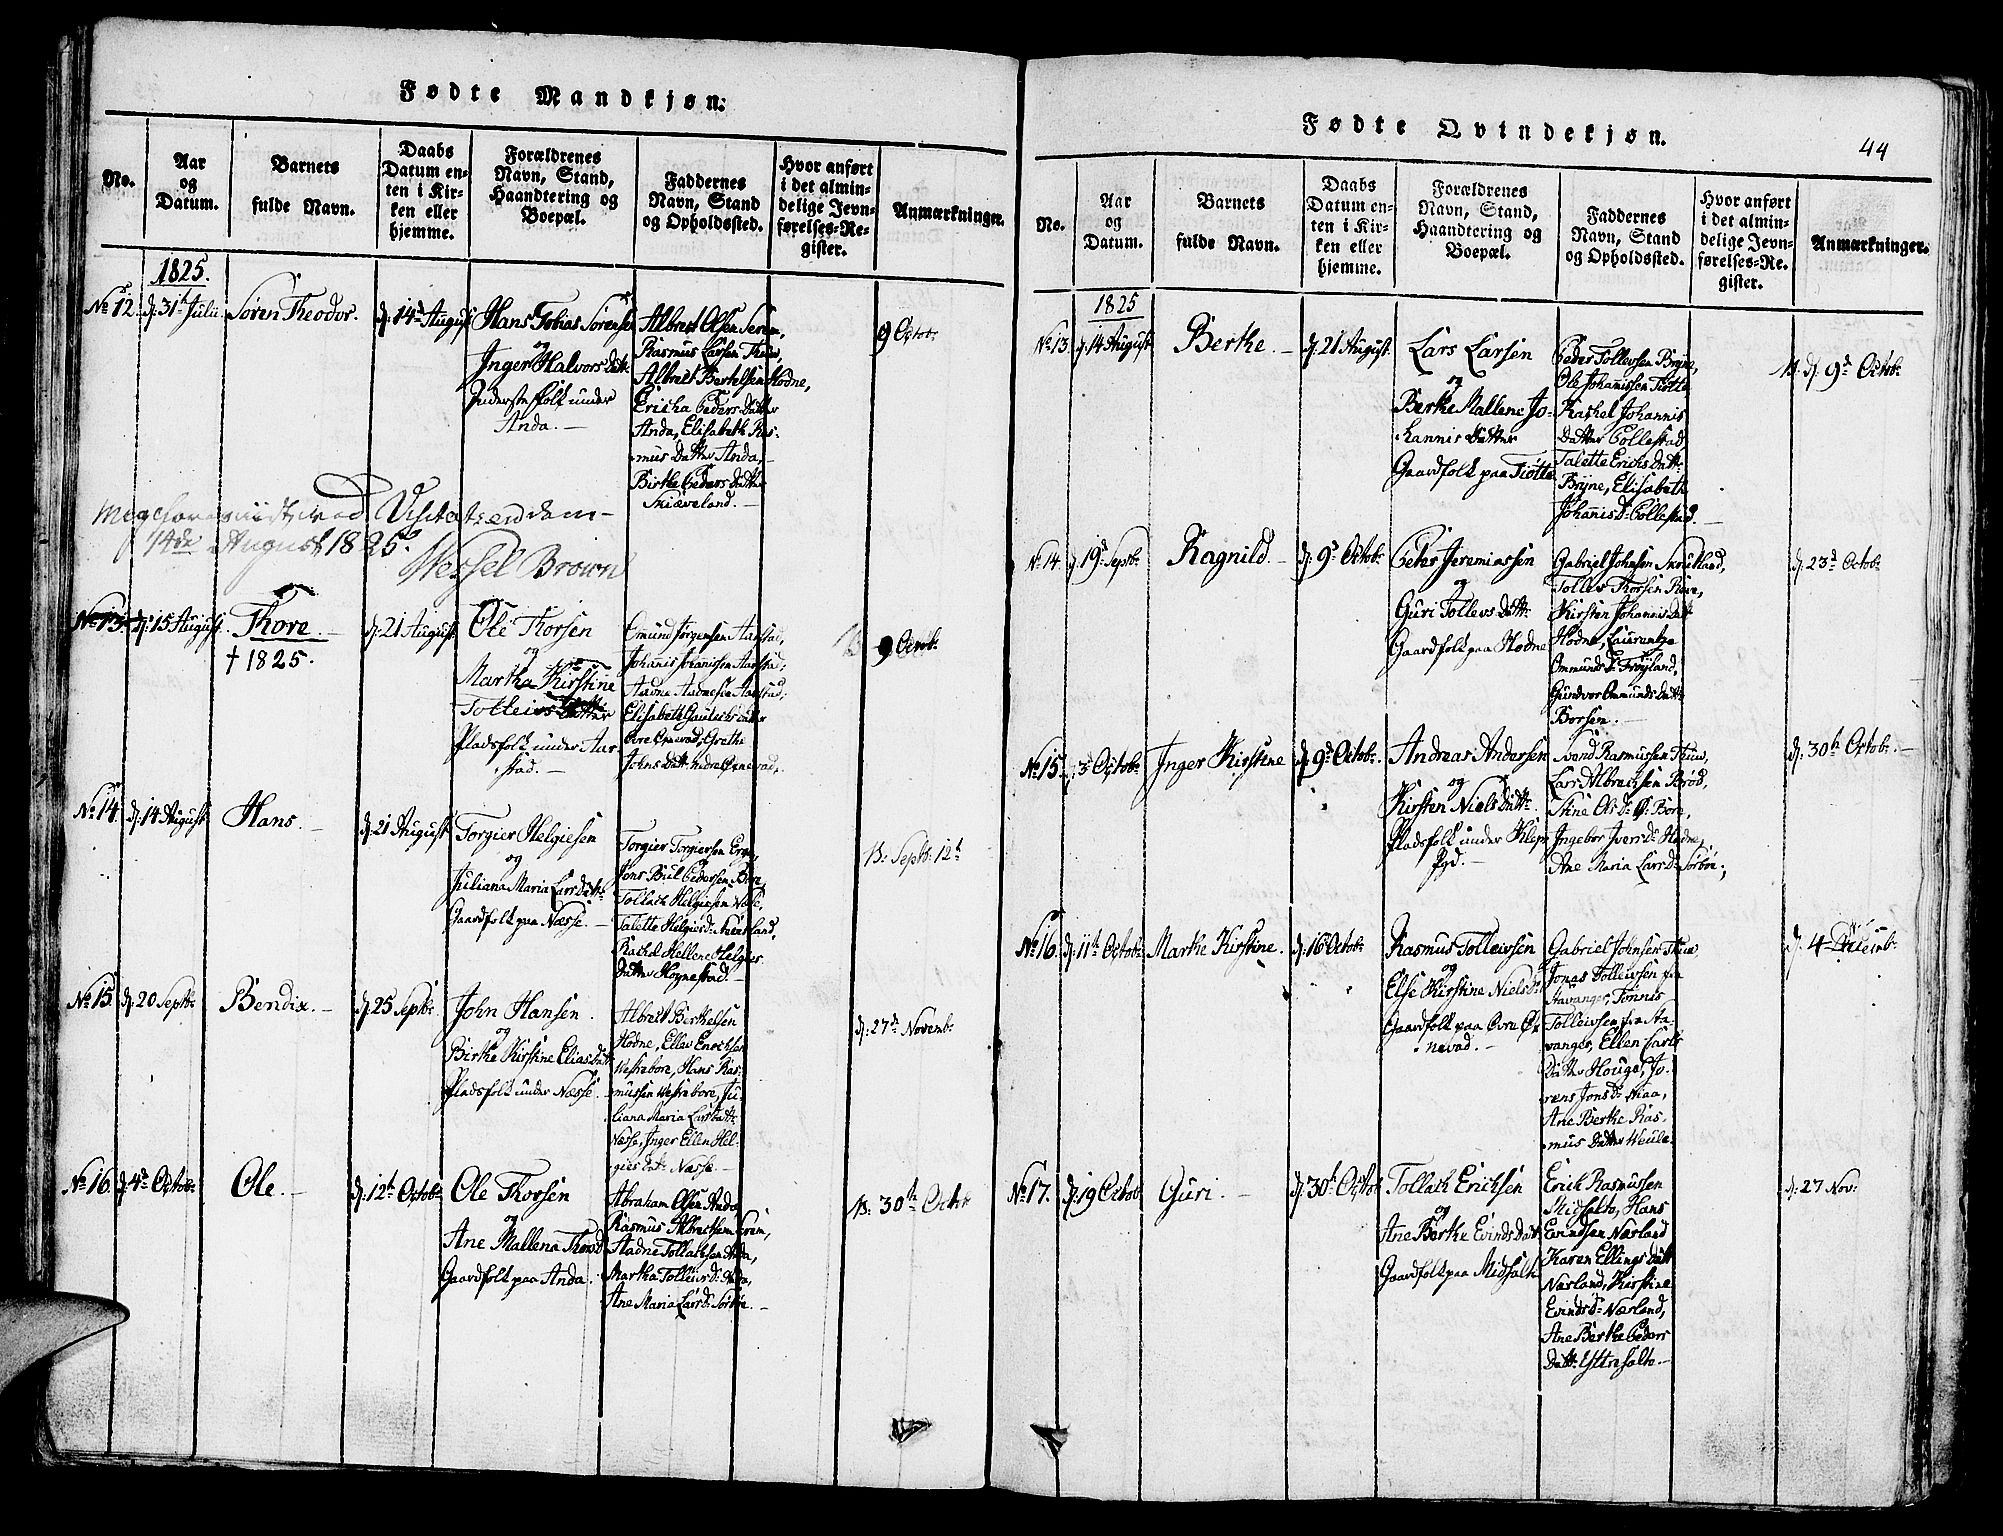 Fødte Mandkjøn.
No.
Aar
og
Datum.
Barnets
fulde Navn.
Daabs
Datum en-
ten i Kir-
ken eller
hjemme.
Forældrenes
Navn, Stand,
Haandtering og
Boepæl.
Faddernes
Navn, Stand
og Opholdssted.
Hvor anført
i det almin-
delige Jevn-
førelses-Re-
gister.
Anmærkninger.
1825.
No 12.
d: 31th Julii
Søren Theodor.
d: 14d August
Hans Tobias Sørensen
og
Inger Halvors Datt:
Inderstefolk under
Anda.
Albrest Olsen Serem,
Rasmus Larsen Tiuw,
Albrest Bertelsen Hodne,
Ericha Peders Datter
Anda, Elisabeth Ras-
mus Datter Anda,
Birthe Peders Datter
Skiæveland.
9 Octob:
Visitatsen den
14de August 1825.
Wessel Brown
No 13.
d: 15 August
Thore
† 1825.
d: 21 August
Ole Thorsen
og
Martha Kirstine
Tolleivs Datter
Pladsfolk under Aar-
stad.
Omund Jørgensen Aarstad,
Johanis Johanissen Aarstad,
Aadne Aadnesen Aarstad,
Elisabeth Gautschs Datter
Øvre Ørnevad, Grethe
Johns Datt: nedre Ørnevad.
9 Octob:
No 14.
d: 14 August
Hans.
d: 21 August
Torgier Helgiesen
og
Juliana Maria Lars Datt:
Gaardfolk paa Næsse.
Torgier Torgiersen Erga,
Jens Bul Pedersen Bore,
Tollach Helgiesen Næse,
Talette Helgiesd:
Rachel Hellene Helgies
Datter Høynestad.
B: Septb: 12th
No 15.
d: 20 Septb:
Bendix.
d: 25 Septb:
John Hansen.
og
Birthe Kirstine Elias Datt:
Pladsfolk under Næsse.
Albrest Birthelsen
Hodne, Ellev Enochsen
Westrebore, Hans Ras-
mussen Westrebore, Ju-
liana Maria Larsdatt:
Næsse, Inger Ellen Hel-
gies datt: Næsse.
d: 27d Novemb:
No 16.
d: 4d Octob:
Ole.
d: 12th Octob:
Ole Thorsen
og
Ane Mallena Thorsd:
Gaardfolk paa Anda.
Abraham Olsen Anda
Rasmus Albrechtsen Serem,
Aadne Tollachsen Anda,
Martha Tolleivs D: Anda,
Ane Maria Larsd: Sørbøe.
B: 30th Octob:
Fødte Qvindekjøn.
44
No.
Aar
og
Datum.
Barnets
fulde Navn.
Daabs
Datum en-
ten i Kir-
ken eller
hjemme.
Forældrenes
Navn, Stand,
Haandtering og
Boepæl.
Faddernes
Navn, Stand
og Opholdssted.
Hvor anført
i det almin-
delige Jevn-
førelses-Re-
gister.
Anmærkninger.
1825
No 13.
d: 14 August
Berthe.
d: 21 August.
Lars Larsen
og
Berthe Mallene Jo-
hannis Datter
Gaardfolk paa Tiøtte
Peder Tollevsen Bryne,
Ole Johannissen Tiøtte
Rachel Johannis
Datter Gollestad
Talette Erichs Datt:
Bryne, Elisabeth
Johanisd: Gollestad.
B. d: 9d Octob:
No 14.
d: 19d Septb:
Ragnild.
d: 9d Octob:
Peter Jeremiassen
og
Guri Tollevs Datt:
Gaardfolk paa Hodne
Gabriel Johnsen
Tollev Thorsen
Kirsten Johannis Datt
Hodne, Laurentze
Ommunds D: Frøyland,
Gundvor Ommunds Datt:
Borsen.
d: 23d Octob:
No 15.
3d Octob:
Inger Kirstine
d: 9d Octob:
Andreas Andersen
og
Kirsten Niels Datt:
Pladsfolk under Klep
Pgd.
Svend Rasmussen Tiuw,
Lars Albrechsen Brød,
Stine Ols D: Bore,
Ingebor Ivers D: Hodne,
Ane Maria Lars D: Sørbøe,
d: 30th Octob:
No 16.
d: 11th Octob:
Marthe Kirstine.
d: 16 Octob:
Rasmus Tolleivsen
og
Else Kirstine Niels D:
Gaardfolk paa Øvre Ør-
nevad.
Gabriel Johnsen Tiuw,
Jonas Tolleivsen fra
Stavanger, Tønnis
Tolleivsen fra Sta-
vanger, Ellen Carls
Datter Houge, Jo-
rens Jons D: Hiaa,
Ane Berthe Ras-
mus Datter
d: 4
No 17.
d: 19 Octob:
Guri.
d: 30th Octob:
Tollach Erichsen
og
Ane Berthe Evinds Datt:
Gaardfolk paa Midsalte
Erick Rasmussen
Midsalte, Hans
Evindsen Nærland
Karen Ellings Datt
Nærland, Kirstine
Evindsd: Nærland,
Ane Berthe Peders
Datt:
d: 27 Nov: